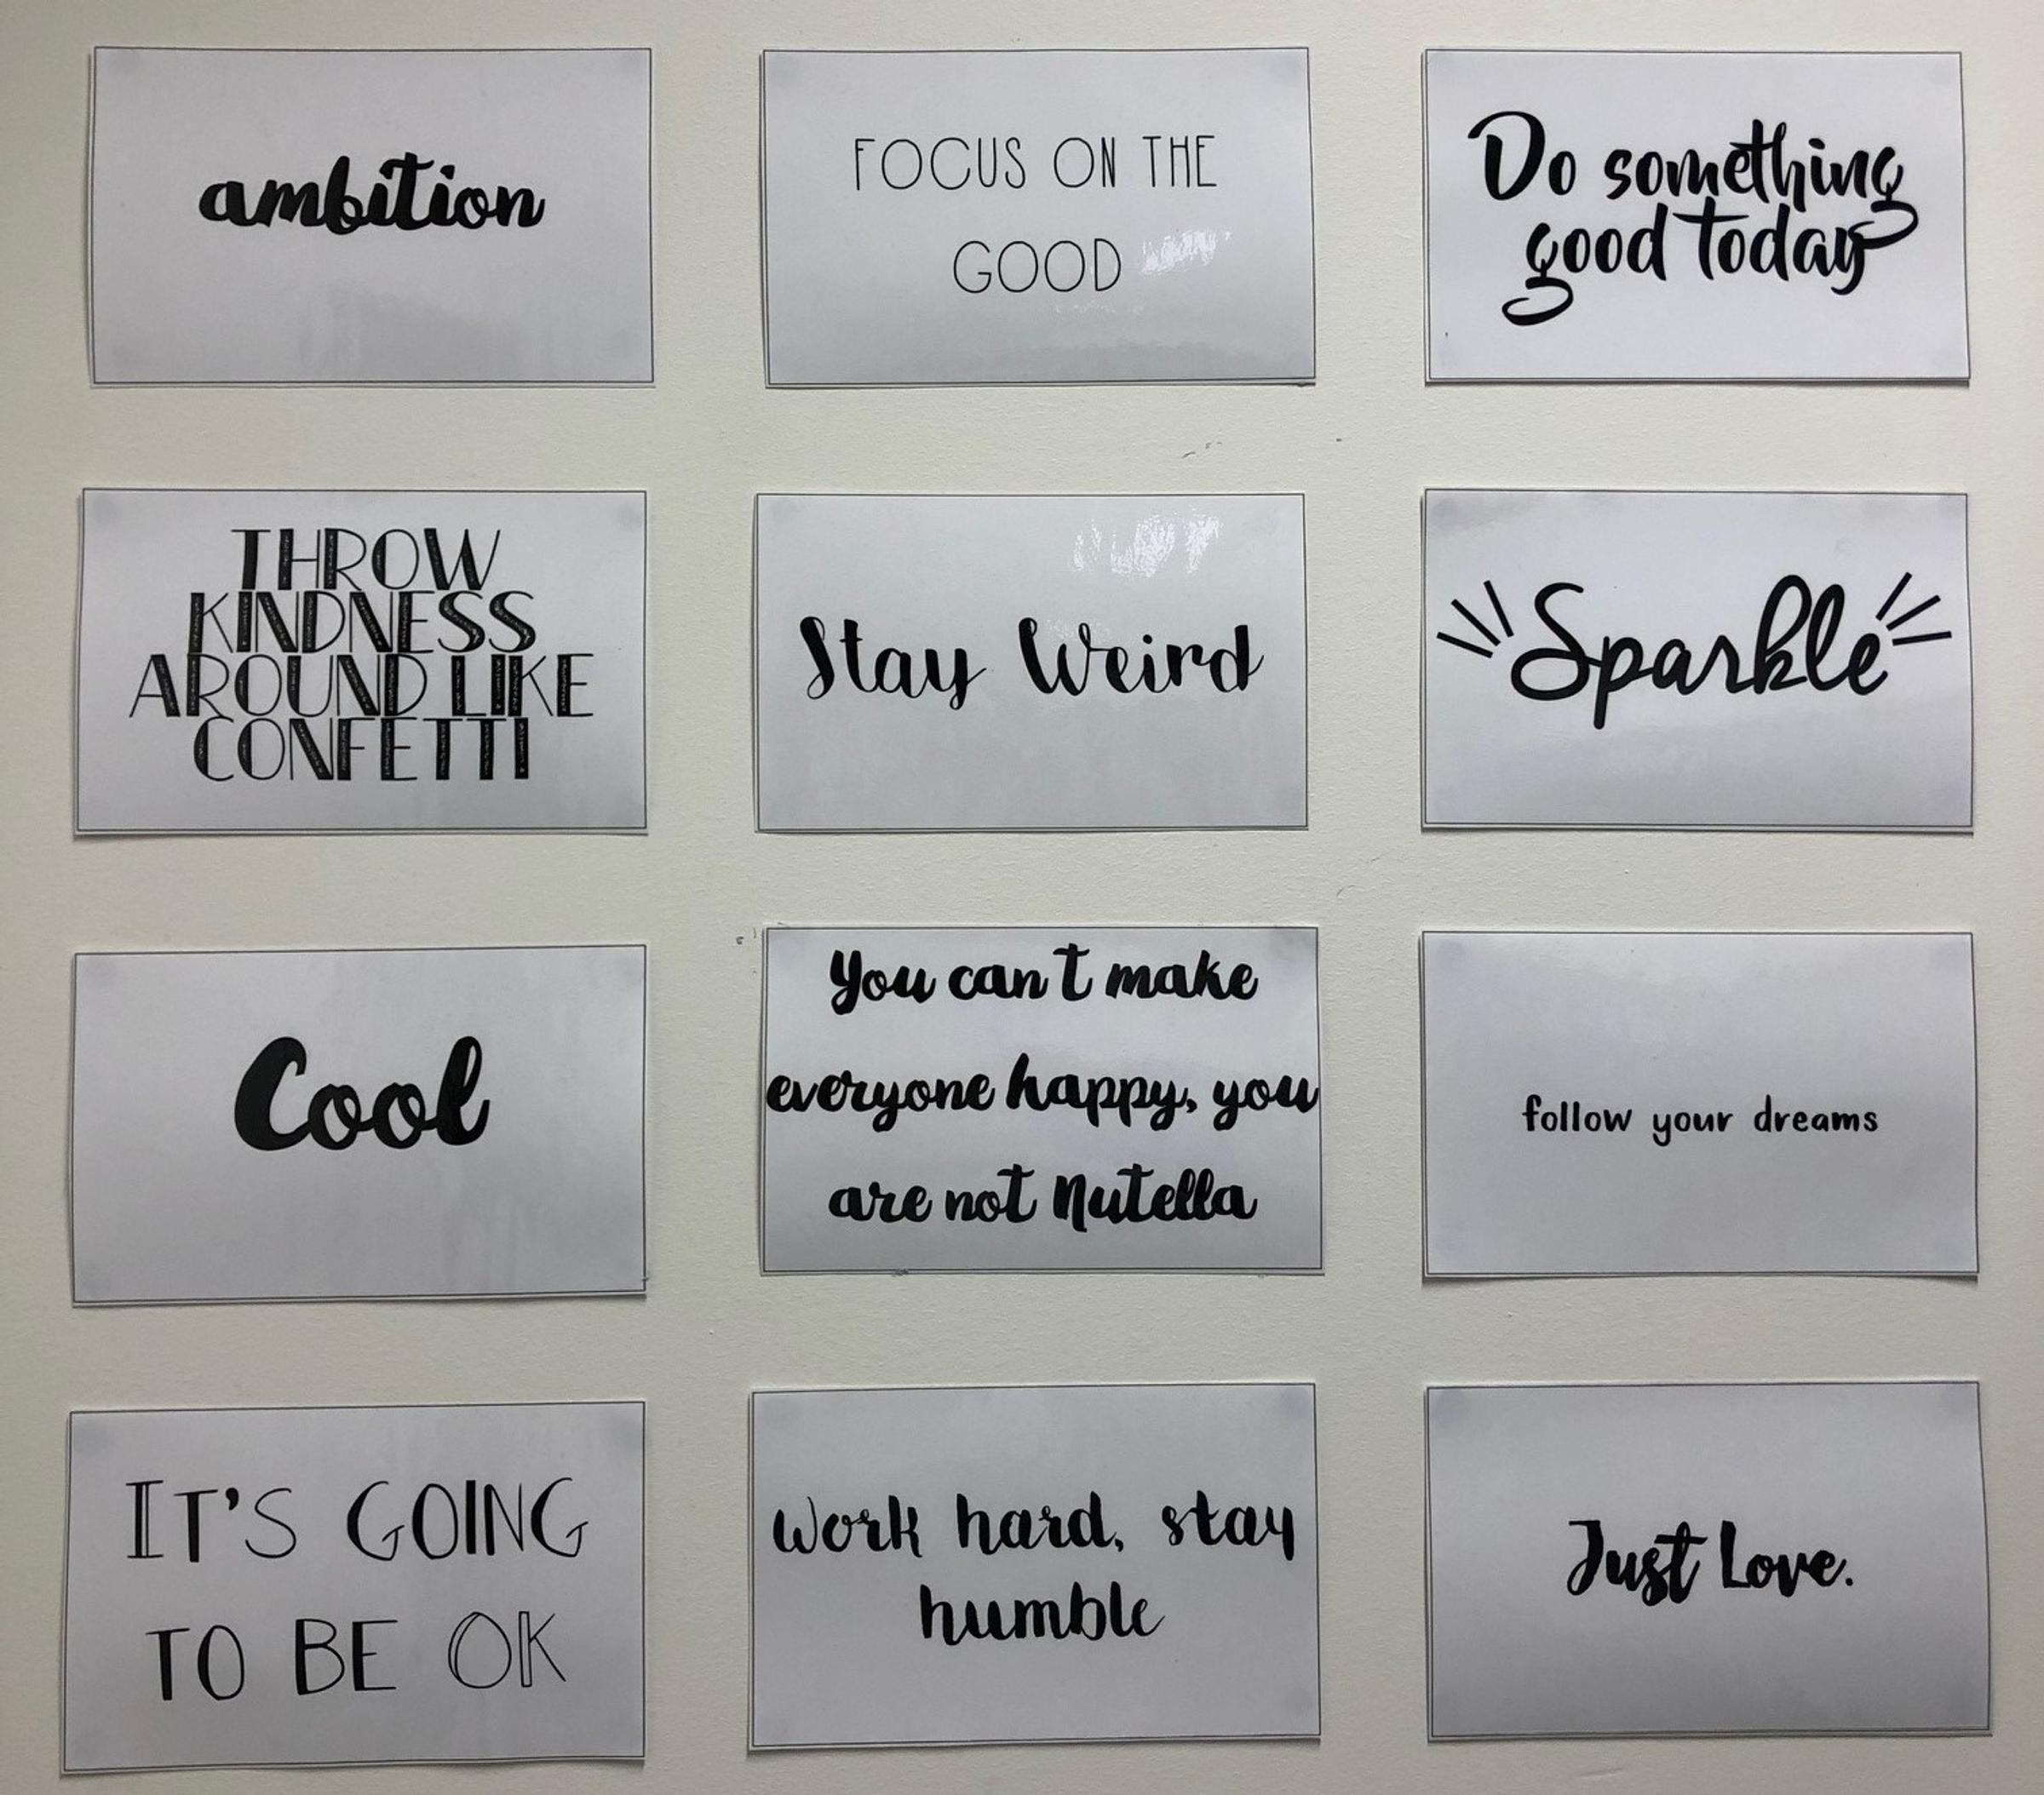 ambition
FOCUS ON THE
GOOD
Do something
good today
THROW
KINDNESS
AROUND LIKE
CONFETTI
Stay Weird
Sparkle
Cool
You can t make
everyone happy, you
are not Nutella
follow your dreams
IT'S GOING
TO BE OK
Work hard, stay
humble
Just Love.